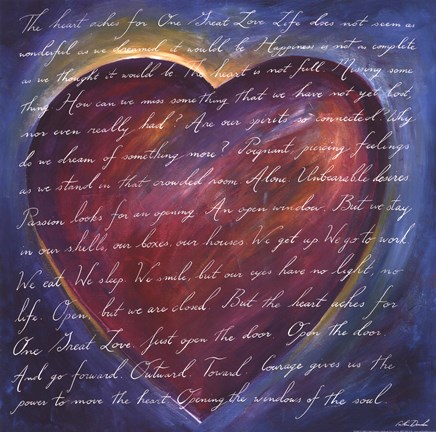 The heart aches for One Great Love Life does not seem as
wonderful as we dreamed it would be Happiness is not as complete
as we thought it would be The heart is not full. Missing some
thing. How can we miss something that we have not yet lost,
nor even really had? Are our spirits so connected. Why
do we dream of something more? Poignant, piercing feelings
as we stand in that crowded room. Alone. Unbearable desires.
Passion looks for an opening. An open window. But we stay
in our shells, our boxes, our houses. We get up We go to work
We eat. We sleep. We smile, but our eyes have no light, no
life. Open, but we are closed But the heart aches for
One Great Love. Just open the door. Open the door.
And go forward. Outward. Toward. Courage gives us the
power to move the heart. Opening the windows of the soul.